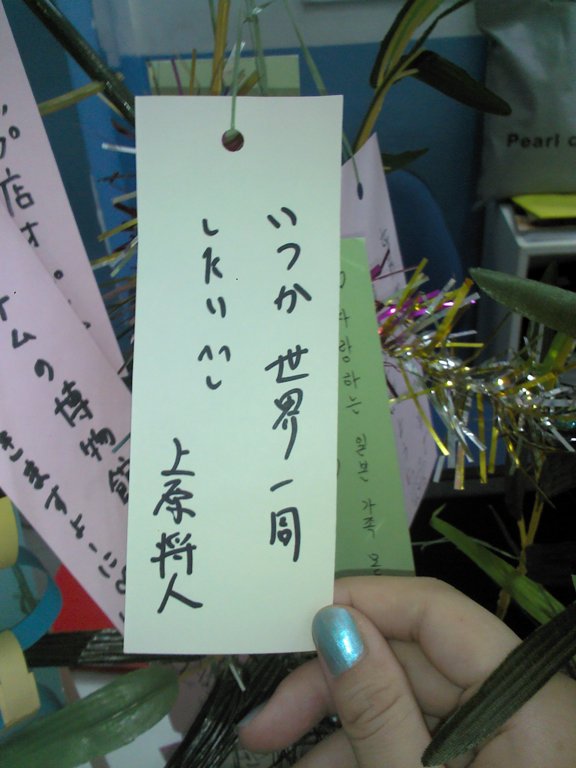 いつか世界一同
したい
上原将人
店す
ムの博物館
きますように
사랑하는 일본 가족
Pearl